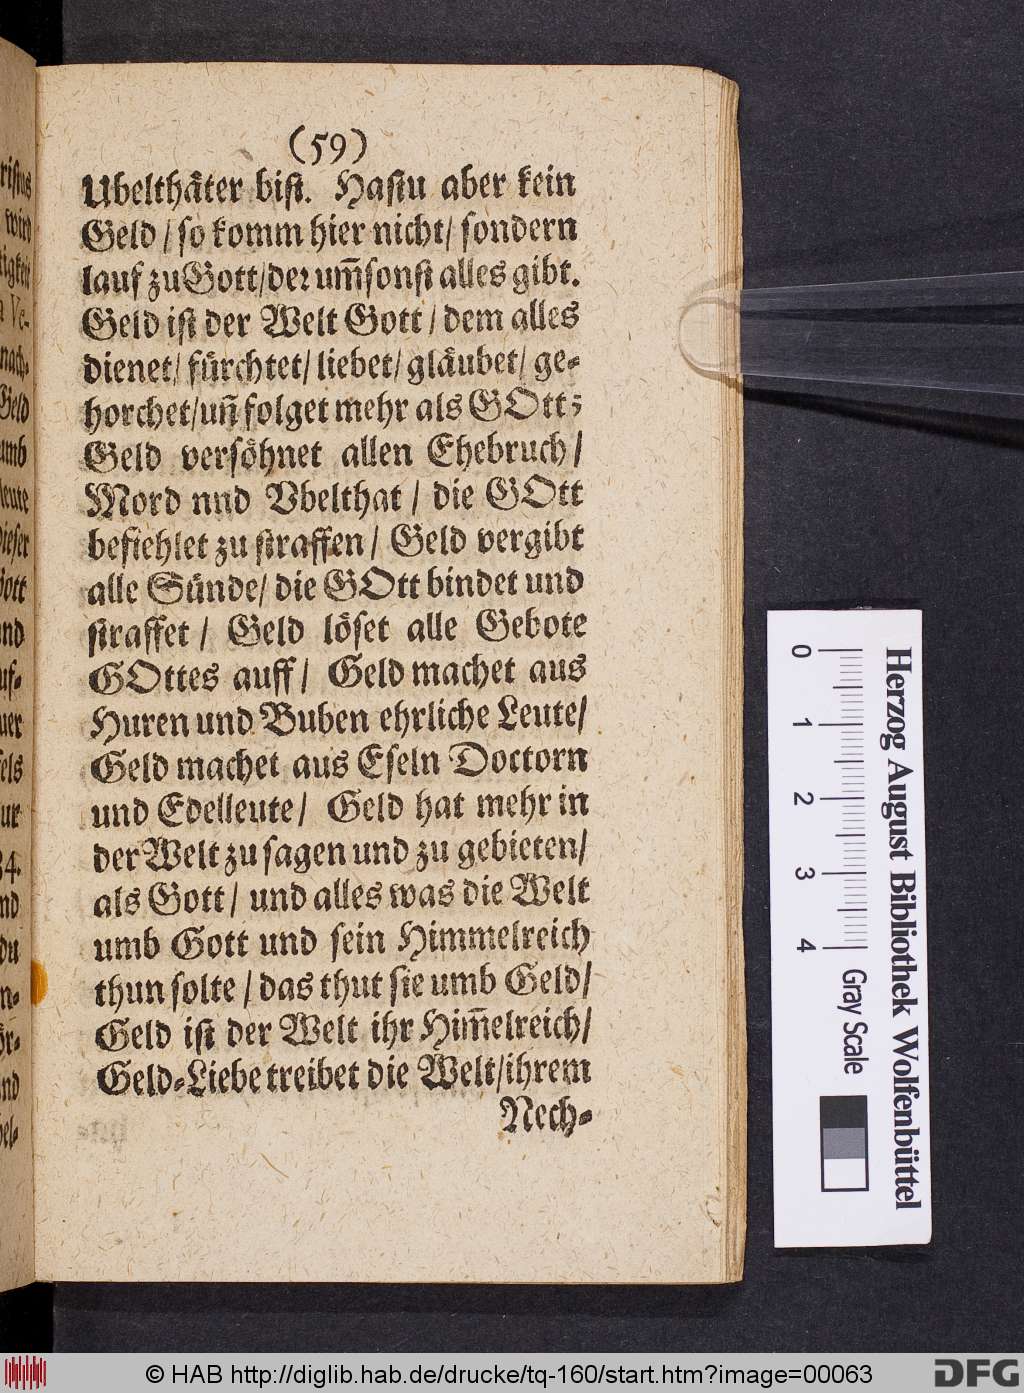 (59)
Ubelthäter bist. Hastu aber kein
Geld / so komm hier nicht / sondern
lauf zu Gott / der um̃sonst alles gibt.
Geld ist der Welt Gott / dem alles
dienet / fürchtet / liebet / gläubet / ge-
horchet / uñ folget mehr als GOtt;
Geld versöhnet allen Ehebruch /
Mord nnd Vbelthat / die GOtt
befiehlet zu straffen / Geld vergibt
alle Sünde / die GOtt bindet und
straffet / Geld löset alle Gebote
GOttes auff / Geld machet aus
Huren und Buben ehrliche Leute /
Geld machet aus Eseln Doctorn
und Edelleute / Geld hat mehr in
der Welt zu sagen und zu gebieten /
als Gott / und alles was die Welt
umb Gott und sein Himmelreich
thun solte / das thut sie umb Geld /
Geld ist der Welt ihr Him̃elreich /
Geld-Liebe treibet die Welt / ihrem
Nech-
Herzog August Bibliothek Wolfenbüttel
0 1 2 3 4 Gray Scale
© HAB http://diglib.hab.de/drucke/tq-160/start.htm?image=00063
DFG